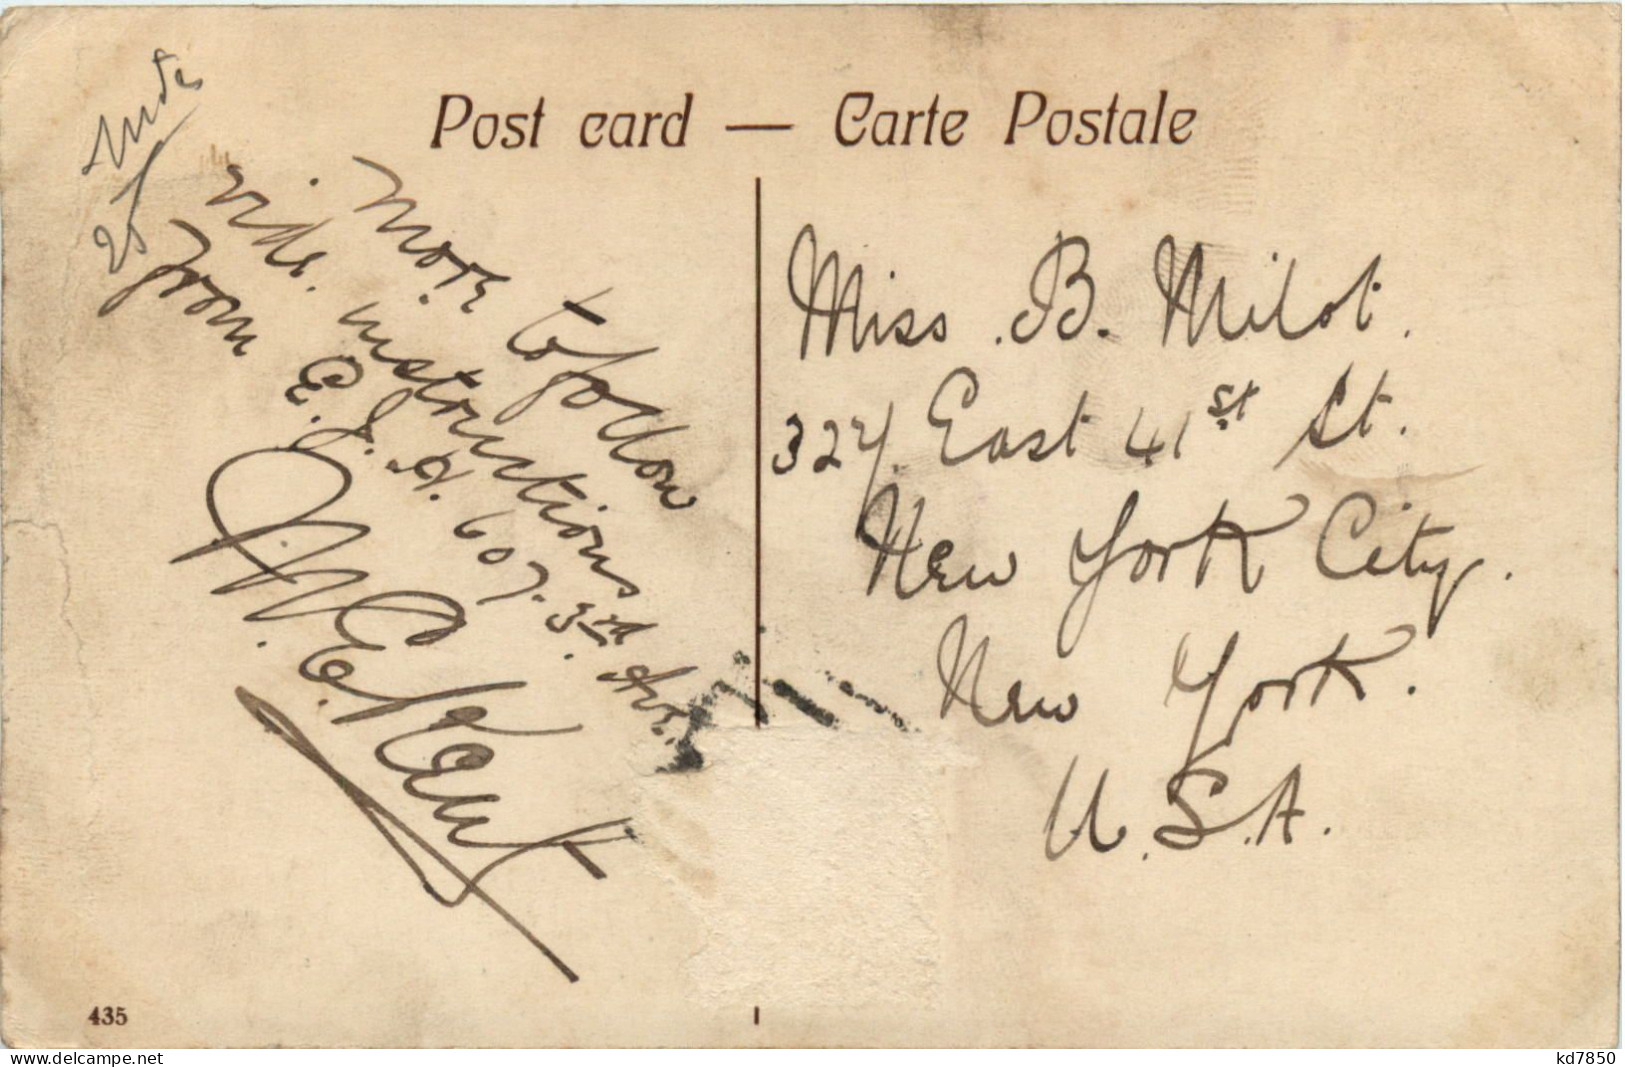 Post card — Carte Postale
25
More to follow
vide. instructions
from E. J. H. 607. 3rd Ave.
J. W. E. Kent
Miss. B. Milot.
327. East 41st St.
New York City.
New York.
U.S.A.
435
www.delcampe.net
kd7850